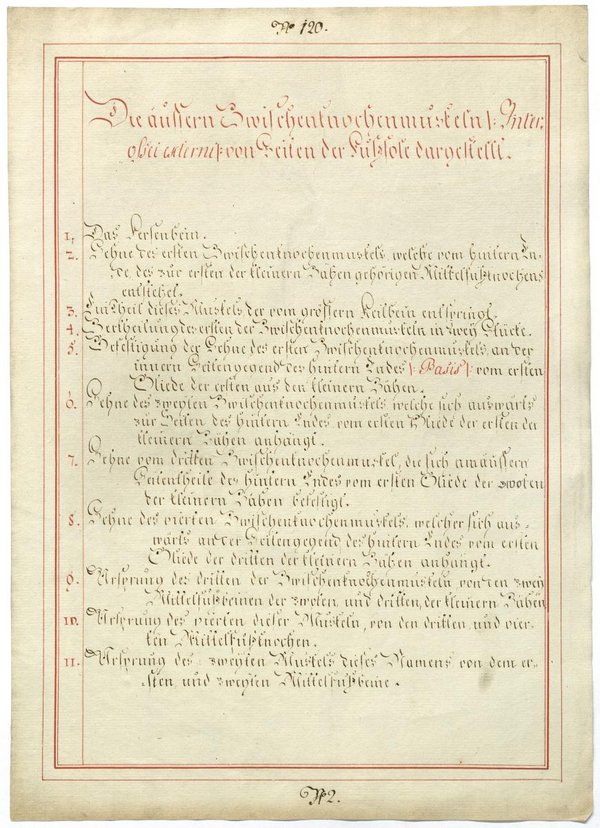 No 120.
Die äussern Zwischenknochenmuskeln |: Inter,
ossei externi :| von Seiten der Fußsole dargestellt.
1, Das Fersenbein.
2. Sehne des ersten Zwischenknochenmuskels, welche vom hintern En-
de, des zur ersten der kleinern Zähen gehörigen Mittelfußknochens
entstehet.
3. Ein Theil dieses Muskels der vom grössern Keilbein entspringt.
4. Zertheilung des ersten der Zwischenknochenmuskeln in zwey Stücke.
5. Befestigung der Sehne des ersten Zwischenknochenmuskels, an der
innern Seitengegend des hintern Endes |: Basis :| vom ersten
Gliede der ersten aus den kleinern Zähen.
6. Sehne des zweyten Zwischenknochenmuskels, welche sich auswärts
zur Seiten des hintern Endes vom ersten Gliede der ersten der
kleinern Zähen anhängt.
7. Sehne vom dritten Zwischenknochenmuskel, die sich am äussern
Seitentheile des hintern Endes vom ersten Gliede der zwoten
der kleinern Zähen befestigt.
8. Sehne des vierten Zwischenknochenmuskels, welcher sich aus-
wärts an der Seitengegend des hintern Endes vom ersten
Gliede der dritten der kleinern Zähen anhängt.
9. Ursprung des dritten der Zwischenknochenmuskeln von den zwey
Mittelfußbeinen der zwoten, und dritten, der kleinern Zähen
10. Ursprung des vierten dieser Muskeln, von den dritten, und vier-
ten Mittelfußknochen.
11. Ursprung des zweyten Muskels dieses Namens von dem er-
sten, und zweyten Mittelfußbeine.
No 2.